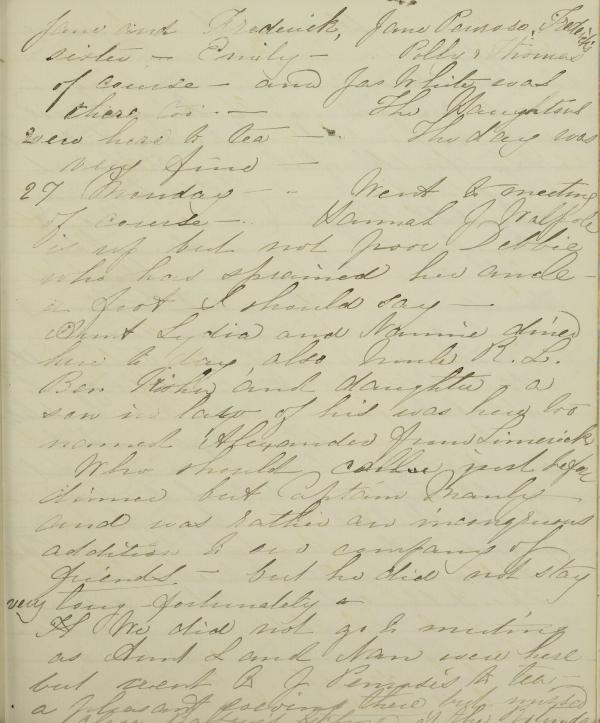 Jane and Frederick, Jane Penrose, Frederick's
sister - Emily - Polly & Thomas
of course - and Jas White was
there too - The Haughtons
were here to tea - The day was
very fine -
27 Monday - Went to meeting
of course - Hannah J Walpole
is up but not poor Debbie
who has sprained her ancle -
a foot I should say -
Aunt Lydia and Nannie dined
here to day also Uncle R. L.
Ben Fisher and daughter, a
son in law of his was here too
named Alexander from Limerick
Who should call just before
dinner but Captain Manly
and was rather an incongruous
addition to our company of
friends - but he did not stay
very long fortunately
We did not go to meeting
as Aunt L and Nan were here
but went to J Penrose's to tea -
a pleasant evening there